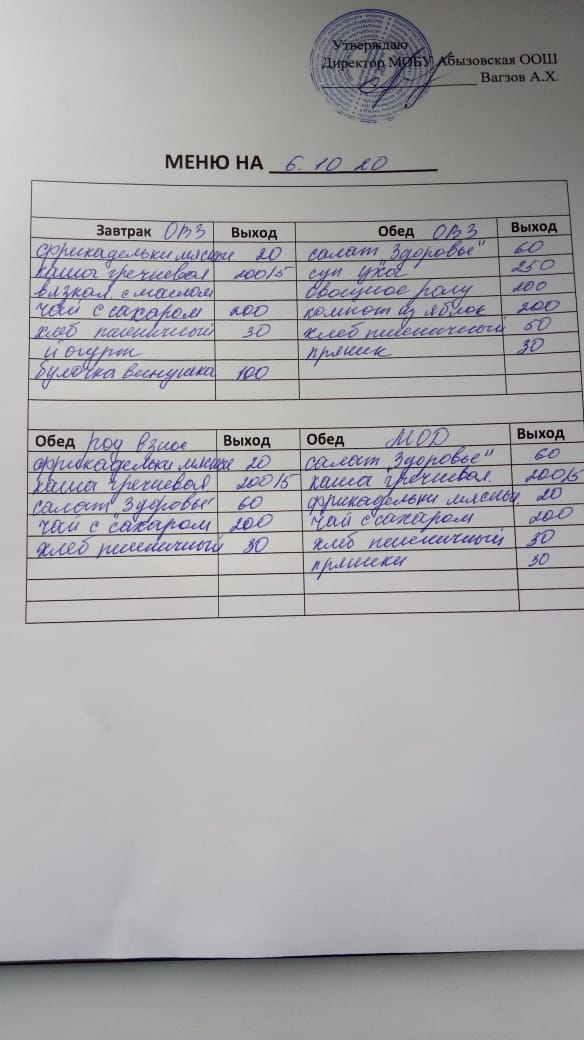 Утверждаю
Директор МОБУ Абызовская ООШ
Вагзов А.Х.
МЕНЮ НА 6.10 20
Завтрак ОВЗ Выход Обед ОВЗ Выход
фрикадельки мясные 20 салат "Здоровье" 60
каша гречневая 200/5 суп уха 250
вязкая с маслом овощное рагу 200
чай с сахаром 200 компот из яблок 200
хлеб пшеничный 30 хлеб пшеничный 50
йогурт пряник 30
булочка веснушка 100
Обед род взнос Выход Обед МОД Выход
фрикадельки мясные 20 салат "Здоровье" 60
каша гречневая 200/5 каша гречневая 200/5
салат "Здоровье" 60 фрикадельки мясные 20
чай с сахаром 200 чай с сахаром 200
хлеб пшеничный 30 хлеб пшеничный 30
пряники 30